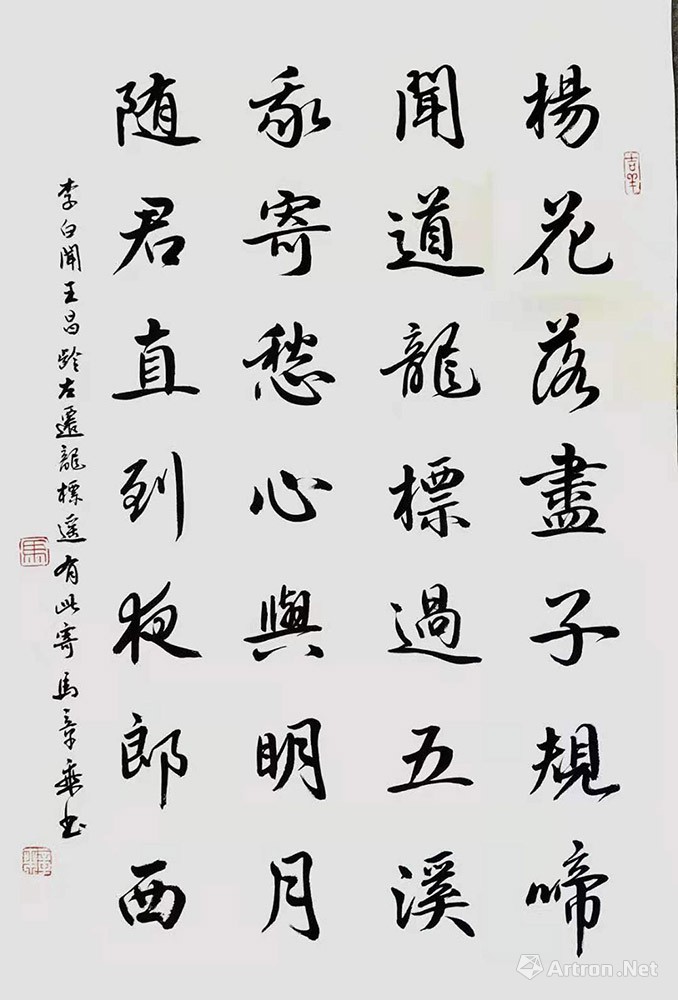 楊花落盡子規啼
聞道龍標過五溪
我寄愁心與明月
随君直到夜郎西
李白聞王昌齡左遷龍標遥有此寄 馬章乘书
馬
Artron.Net